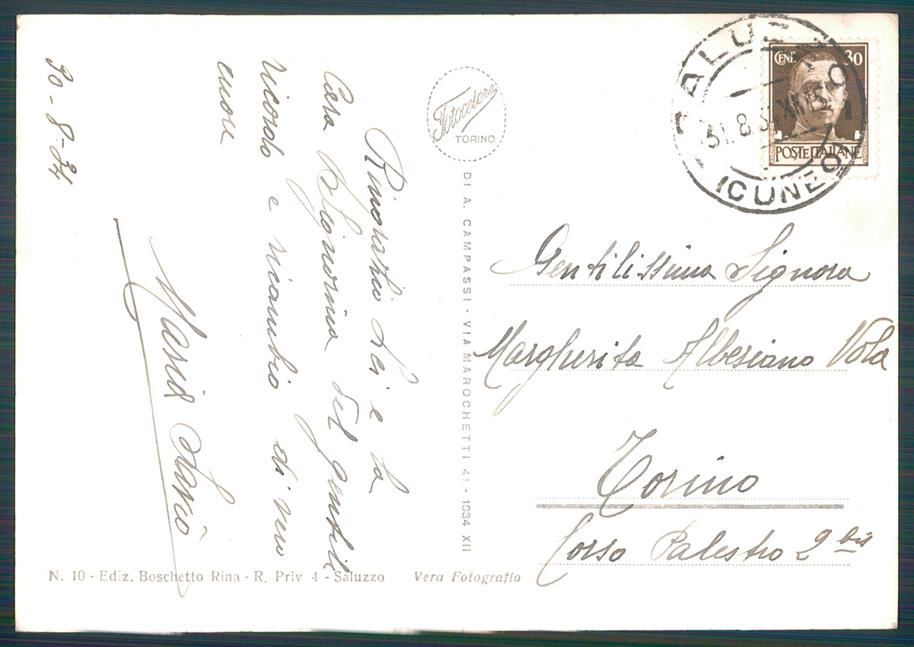 30-8-34
Ringrazio Lei e la
Cara Signorina del gentile
ricordo e ricambio di vivo
cuore
Maria
Fotocelere
TORINO
DI A. CAMPASSI - VIA MAROCHETTI 41 - 1934 XII
SALUZZO
31.8.34 XII 15
(CUNEO)
CENT. 30
POSTE ITALIANE
Gentilissima Signora
Margherita Albesiano Vola
Torino
Corso Palestro 2 bis
N. 10 - Ediz. Boschetto Rina - R. Priv 4 - Saluzzo
Vera Fotografia